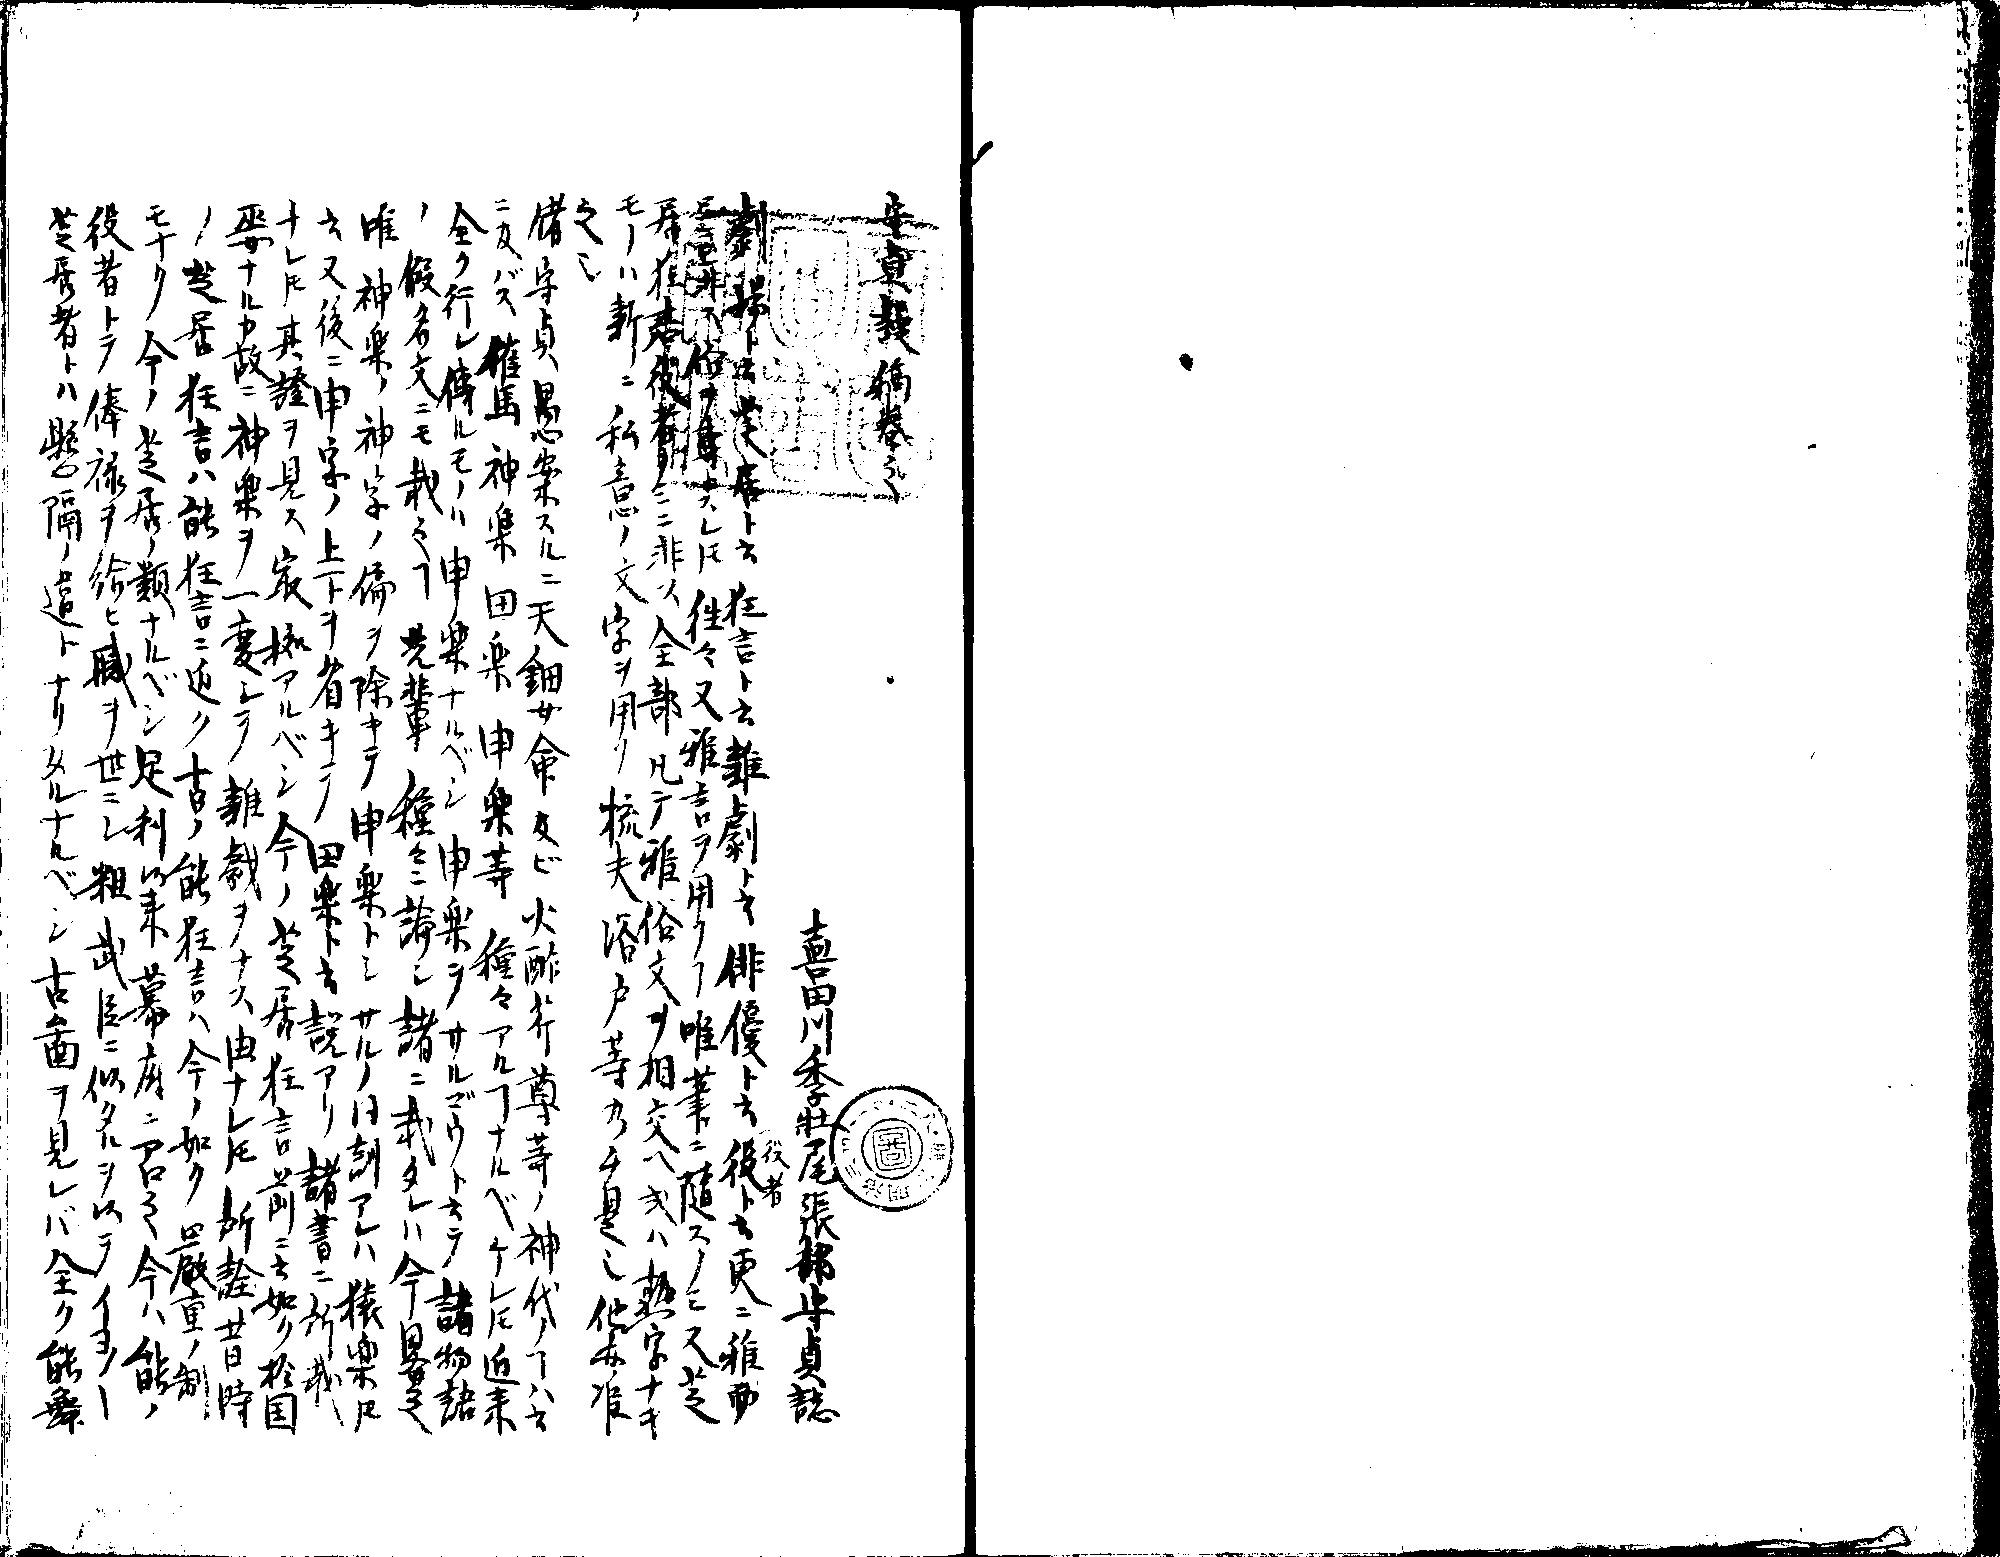 守貞謾稿巻之
喜田川季荘尾張部守貞誌
劇場ト云芝居ト云狂言ト云雜劇ト云俳優ト云役ト云更ニ雅ヲ
役者
非ス俗ヲ専トスレ𪜈往々又雅言ヲ用フヿ唯筆ニ随スノミ又芝
居狂言役者ノミニ非ス全部凡テ雅俗文ヲ相交ヘ或ハ熟字ナキ
モノハ新ニ私意ノ文字ヲ用ク梳夫浴戸等乃チ是也他亦准
之也
偖守貞愚案スルニ天鈿女命及ビ火酢芹尊等ノ神代ノヿハ云
ニ及バス催馬神楽田楽申楽等種々アルヿナルベケレ𪜈近来
全ク行レ傳ルモノハ申楽ナルベシ申楽ヲサルゴウト云テ諸物語
ノ假名文ニモ載之ヿ先輩種々ニ論シ諸ニ載タレハ今畧之
唯神楽ノ神字ノ偏ヲ除キテ申楽トシサルノ日訓アレハ猿楽𪜈
云又後ニ申字ノ上下ヲ省キテ田楽ト云説アリ諸書ニ所載
ナレ𪜈其證ヲ見ス寂拠アルベシ今ノ芝居狂言前ニ云如ク於国
巫女ナル故ニ神楽ヲ一変シテ雜戯ヲナス由ナレ𪜈所詮昔時
ノ芝居狂言ハ能狂言ニ近ク古ノ能狂言ハ今ノ如ク嚴重ノ制
モナク今ノ芝居ノ類ナルベシ足利以来幕府ニ召之今ハ能ノ
役者トテ俸禄ヲ給ヒ職ヲ世ニシ粗武臣ニ似タルヲ以テイヨ〱
芝居者トハ懸隔ノ違トナリタルナルベシ古画ヲ見レバ全ク能舞